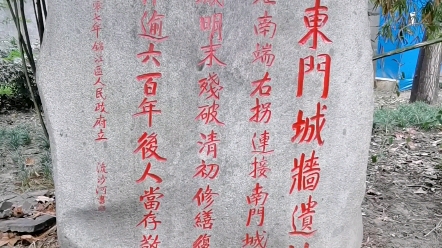 東門城牆遺
南端右拐連接南門城
明末殘破清初修繕復
逾六百年後人當存敬
年錦江區人民政府立 流沙河書